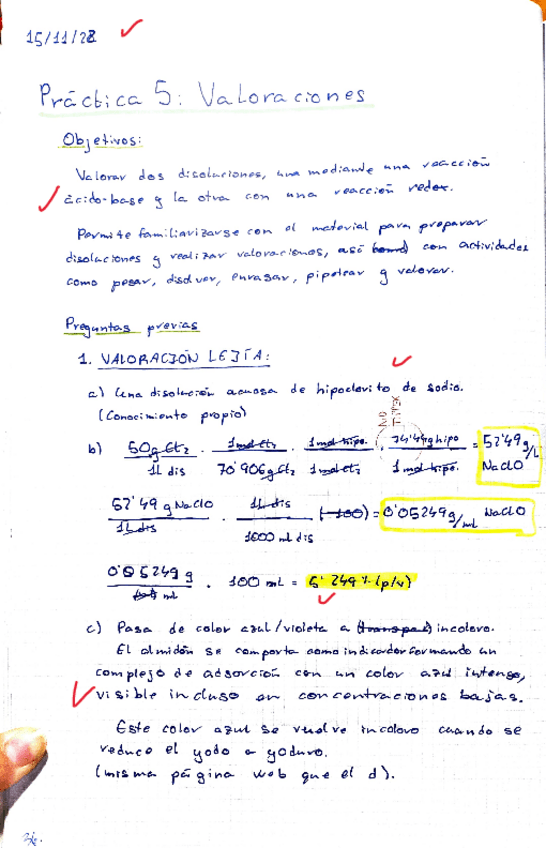 15/11/22
Práctica 5: Valoraciones
Objetivos:
Valorar dos disoluciones, una mediante una reacción
ácido-base y la otra con una reacción redox.
Permite familiarizarse con el material para preparar
disoluciones y realizar valoraciones, así con actividades
como pesar, disolver, enrasar, pipetear y valorar.
Preguntas previas
1. VALORACIÓN LEJÍA:
a) Una disolución acuosa de hipoclorito de sodio.
(Conocimiento propio)
NO TIPPEX
b) 50g Cl2 / 1L dis · 1mol Cl2 / 70'906g Cl2 · 1mol hipo. / 1mol Cl2 · 74'44g hipo / 1mol hipo. = 52'49 g/L NaClO
52'49 g NaClO / 1L dis · 1L dis / 1000 ml dis (·100) = 0'05249 g/ml NaClO
0'05249 g / ml · 100 mL = 5'249 % (p/v)
c) Pasa de color azul/violeta a (transpa) incoloro.
El almidón se comporta como indicador formando un
complejo de adsorción con un color azul intenso,
visible incluso en concentraciones bajas.
Este color azul se vuelve incoloro cuando se
reduce el yodo a yoduro.
(misma página web que el d).